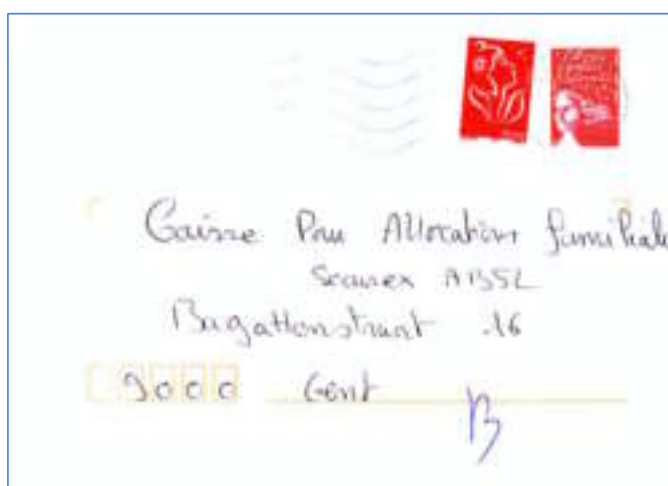 Caisse Pou Allocation familiale
Bugattenstraat 16
9000 Gent
B